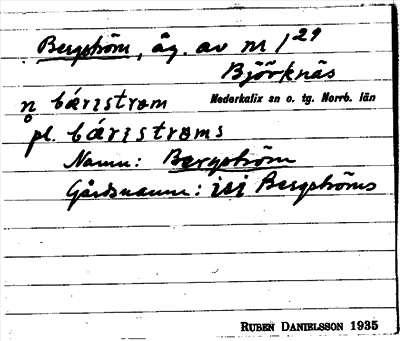 Bergström, äg. av nr 1²⁹
Björknäs
Nederkalix sn o. tg. Norrb. län
n bárɪstrɵm
pl. bárɪstrɵms
Namn: Bergström
Gårdsnamn: isi Bergströms
RUBEN DANIELSSON 1935